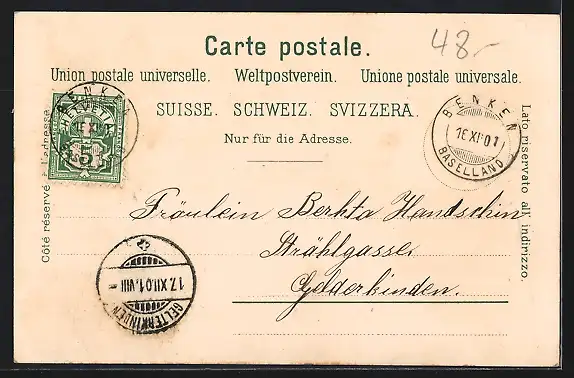 Carte postale.
48.-
Union postale universelle. Weltpostverein. Unione postale universale.
SUISSE. SCHWEIZ. SVIZZERA.
Nur für die Adresse.
HELVETIA
5
BENKEN
16 XI 01
BENKEN
16 XI 01
BASELLAND
Côté réservé à l'adresse
Lato riservato all' indirizzo.
Fräulein Bertha Handschin
Strählgasse
Gelderkinden.
17.XII.01.VIII
GELTERKINDEN